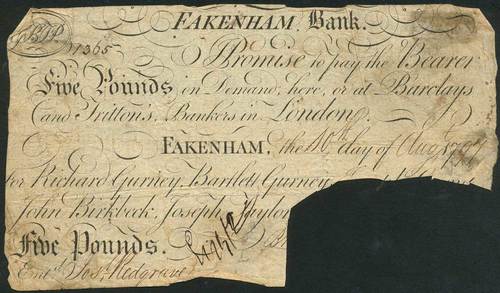 FAKENHAM, Bank.
1365
I Promise to pay the Bearer
FIVE POUNDS on Demand, here, or at Barclays
and Tritton's, Bankers in London,
FAKENHAM, the 10th day of Aug 1797
For Richard Gurney, Bartlett Gurney
John Birkbeck, Joseph Taylor
FIVE POUNDS.
Entd. Jos. Redgrave